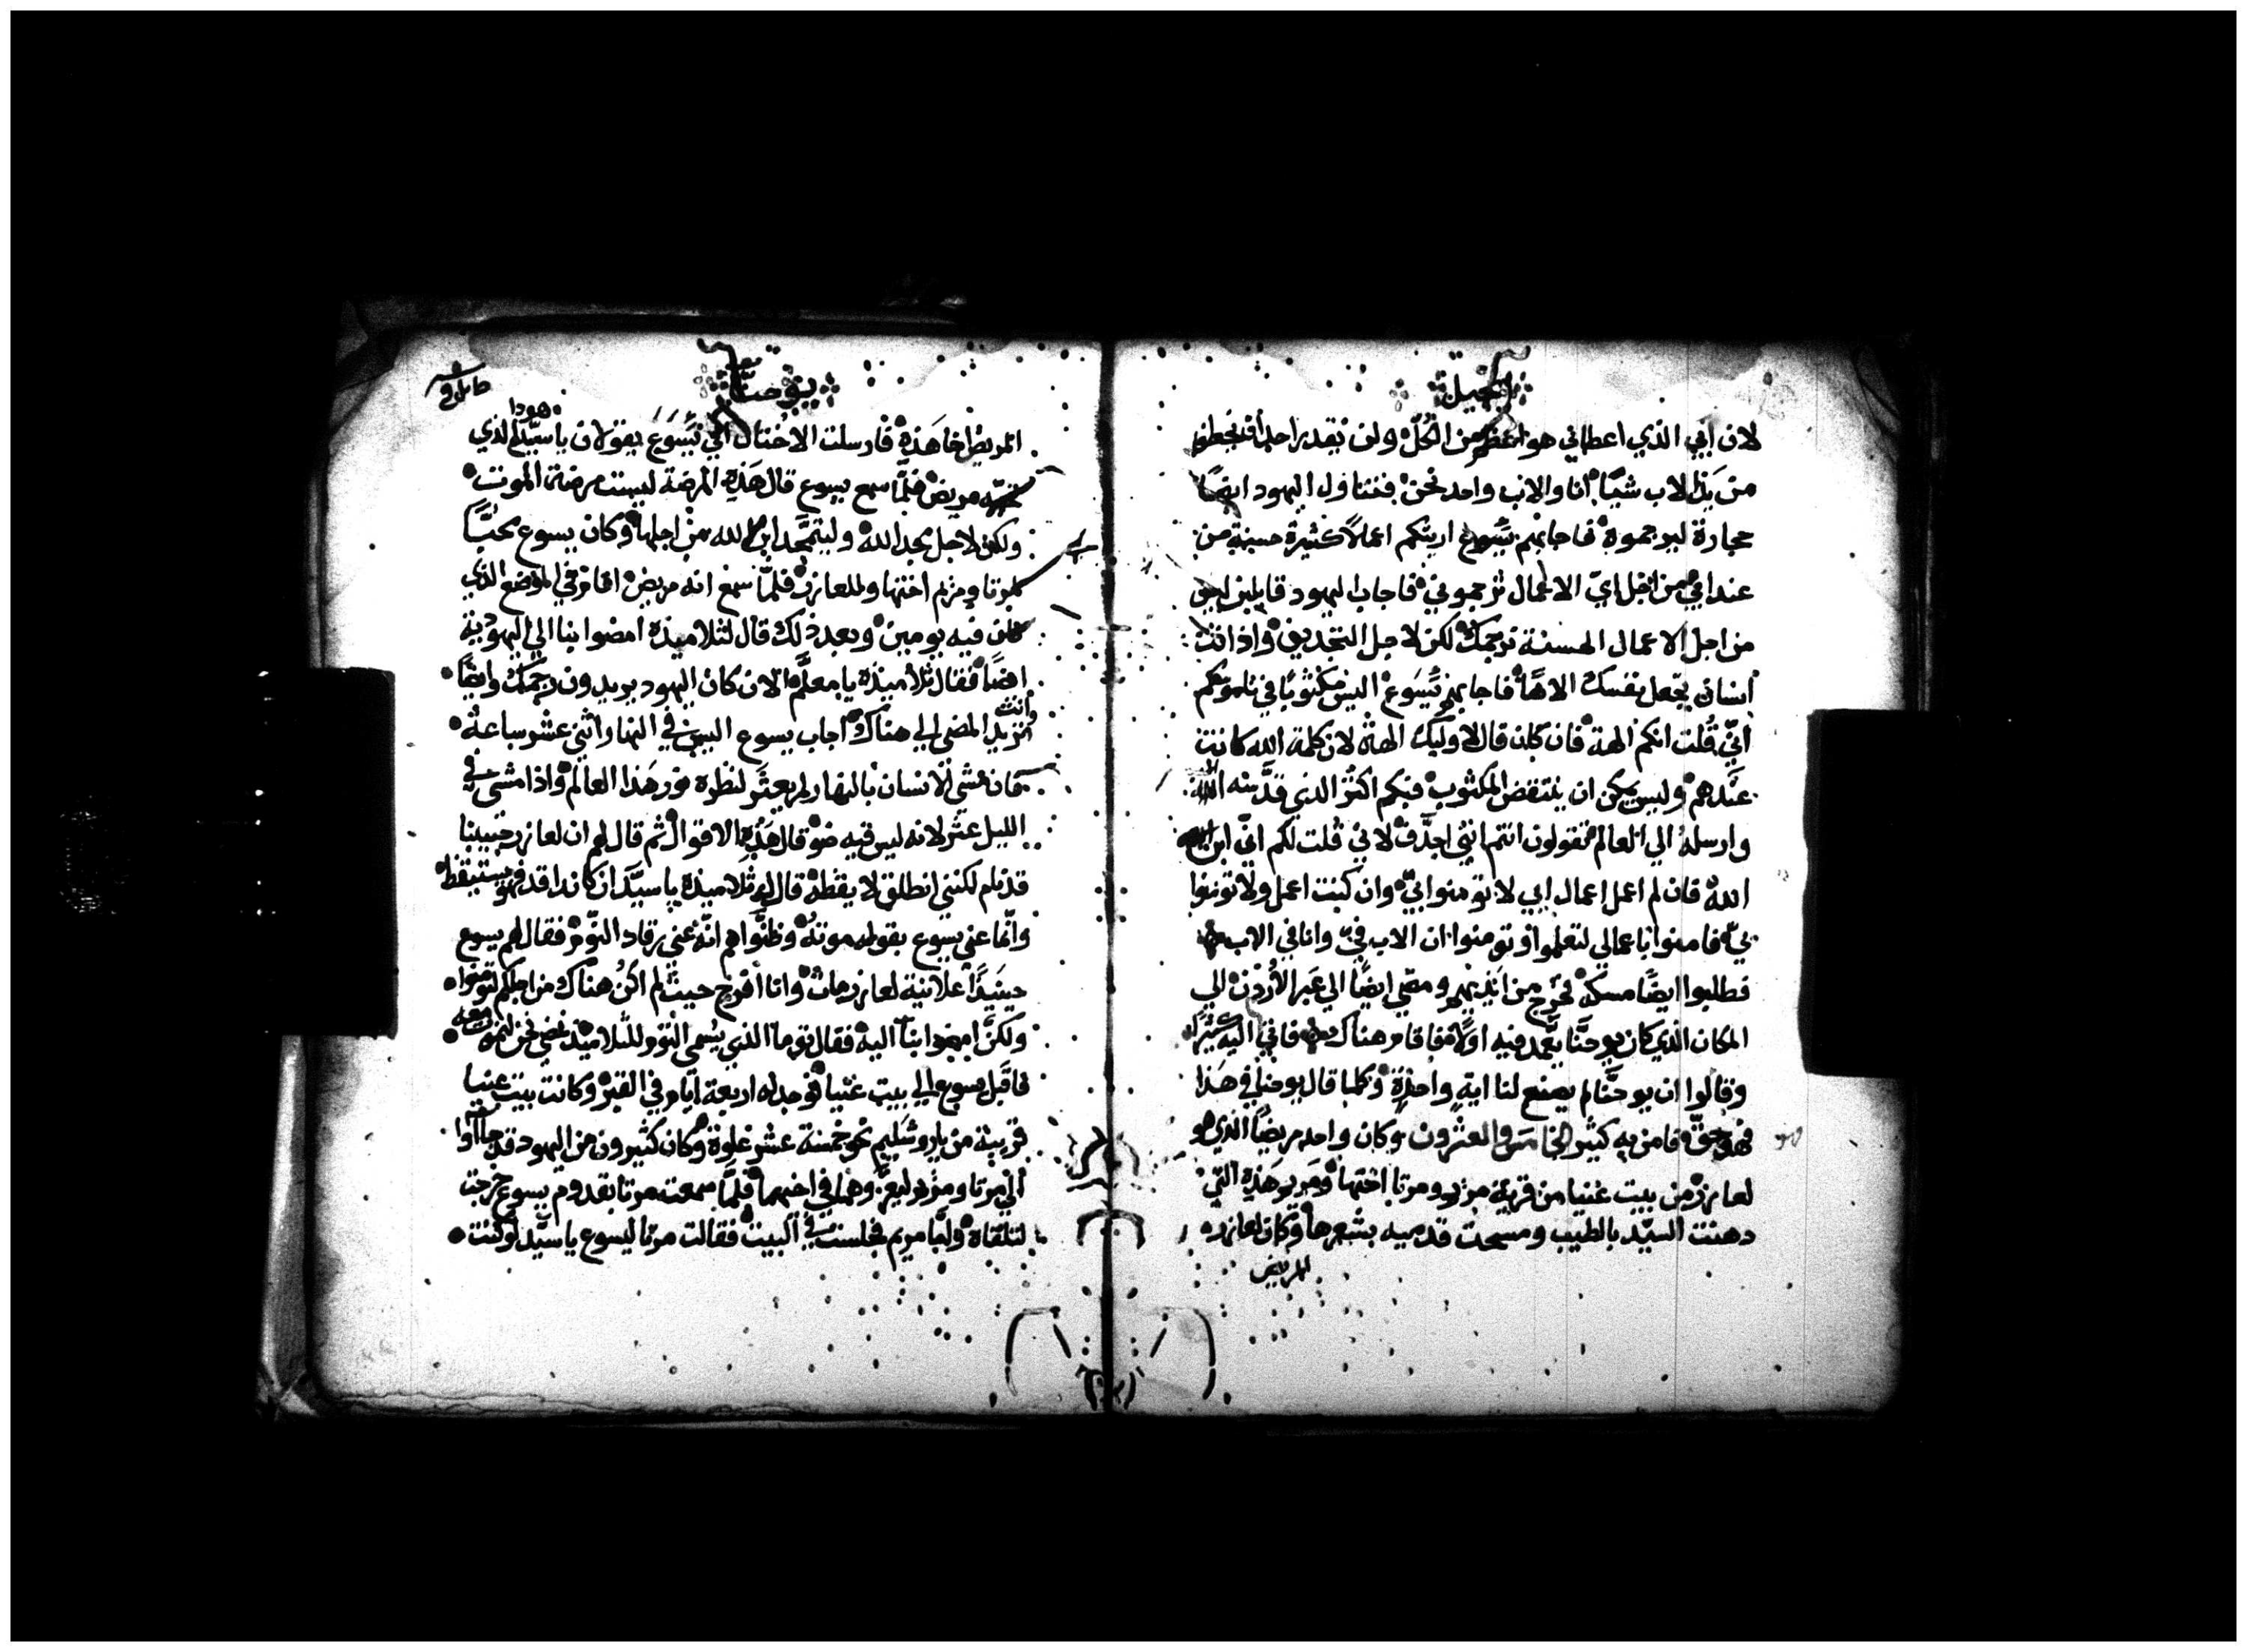 انجيل
لان ابي الذي اعطاني هو اعظم من الكل ولن يقدر احد ان يخطف
من يد الاب شيًا انا والاب واحد نحن فتناول اليهود ايضًا
حجارة ليرجموه فاجابهم يسوع اريتكم اعمالًا كثيرة حسنة من
عند ابي من اجل اي الاعمال ترجموني فاجاب اليهود قايلين ليس
من اجل الاعمال الحسنة نرجمك لكن لاجل التجديف واذ انت
انسان تجعل نفسك الاهًا فاجابهم يسوع اليس مكتوبًا في ناموسكم
اني قلت انكم الهة فان كان قال لاوليك الهة لان كلمة الله كانت
عندهم وليس يمكن ان ينتقض المكتوب فبكم اكثر الذي قدسه الله
وارسله الي العالم فتقولون انتم انني اجدف لاني قلت لكم اني ابن
الله فان لم اعمل اعمال ابي لا تومنوا بي وان كنت اعمل ولا تومنوا
بي فامنوا باعمالي لتعلموا وتومنوا ان الاب في وانا في الاب
فطلبوا ايضًا مسكه فخرج من ايديهم ومضي ايضًا الي عبر الاردن الي
المكان الذي كان يوحنا يعمد فيه اولًا فاقام هناك فاتي اليه كثير
وقالوا ان يوحنا لم يصنع لنا اية واحدة وكلما قال يوحنا في هذا
فهو حق فامن به كثير الخامس والعشرون وكان واحد مريضًا الذي هو
لعازر من بيت عنيا من قرية مريم ومرتا اختها ومريم هذه التي
دهنت السيد بالطيب ومسحت قدميه بشعرها وكان لعازر
المريض
يوحنا
المريض اخا هذه فارسلت الاختان الي يسوع يقولان يا سيد الذي
تحبه مريض فلما سمع يسوع قال هذه المرضة ليست مرضة الموت
ولكن لاجل مجد الله وليتمجد ابن الله من اجلها وكان يسوع محبًا
لمرتا ومريم اختها وللعازر فلما سمع انه مريض اقام في الموضع الذي
كان فيه يومين وبعد ذلك قال لتلاميذه امضوا بنا الي اليهودية
ايضًا فقال تلاميذه يا معلم الان كان اليهود يريدون رجمك وايضًا
انت تريد المضي الي هناك اجاب يسوع اليس في النهار اثني عشر ساعة
فان مشي الانسان بالنهار لم يعثر لنظره نور هذا العالم واذا مشي في
الليل عثر لانه ليس فيه ضو قال هذه الاقوال ثم قال لهم ان لعازر حبيبنا
قد نام لكنني انطلق لايقظه قال له تلاميذه يا سيد ان كان راقد فهو يستيقظ
وانما عني يسوع بقوله موته وظنوا هم انه عني رقاد النوم فقال لهم يسوع
حينيذًا علانية لعازر مات وانا افرح حيث لم اكن هناك من اجلكم لتومنوا
ولكن امضوا بنا اليه فقال توما الذي يسمي التوم للتلاميذ نمضي نحن لنموت معه
فاقبل يسوع الي بيت عنيا فوجد له اربعة ايام في القبر وكانت بيت عنيا
قريبة من ياروشليم نحو خمسة عشر غلوة وكان كثيرون من اليهود قد جاآوا
الي مرتا ومريم ليعزوهما في اخيهما فلما سمعت مرتا بقدوم يسوع خرجت
لتلقاه ولما مريم فجلست في البيت فقالت مرتا ليسوع يا سيد لو كنت